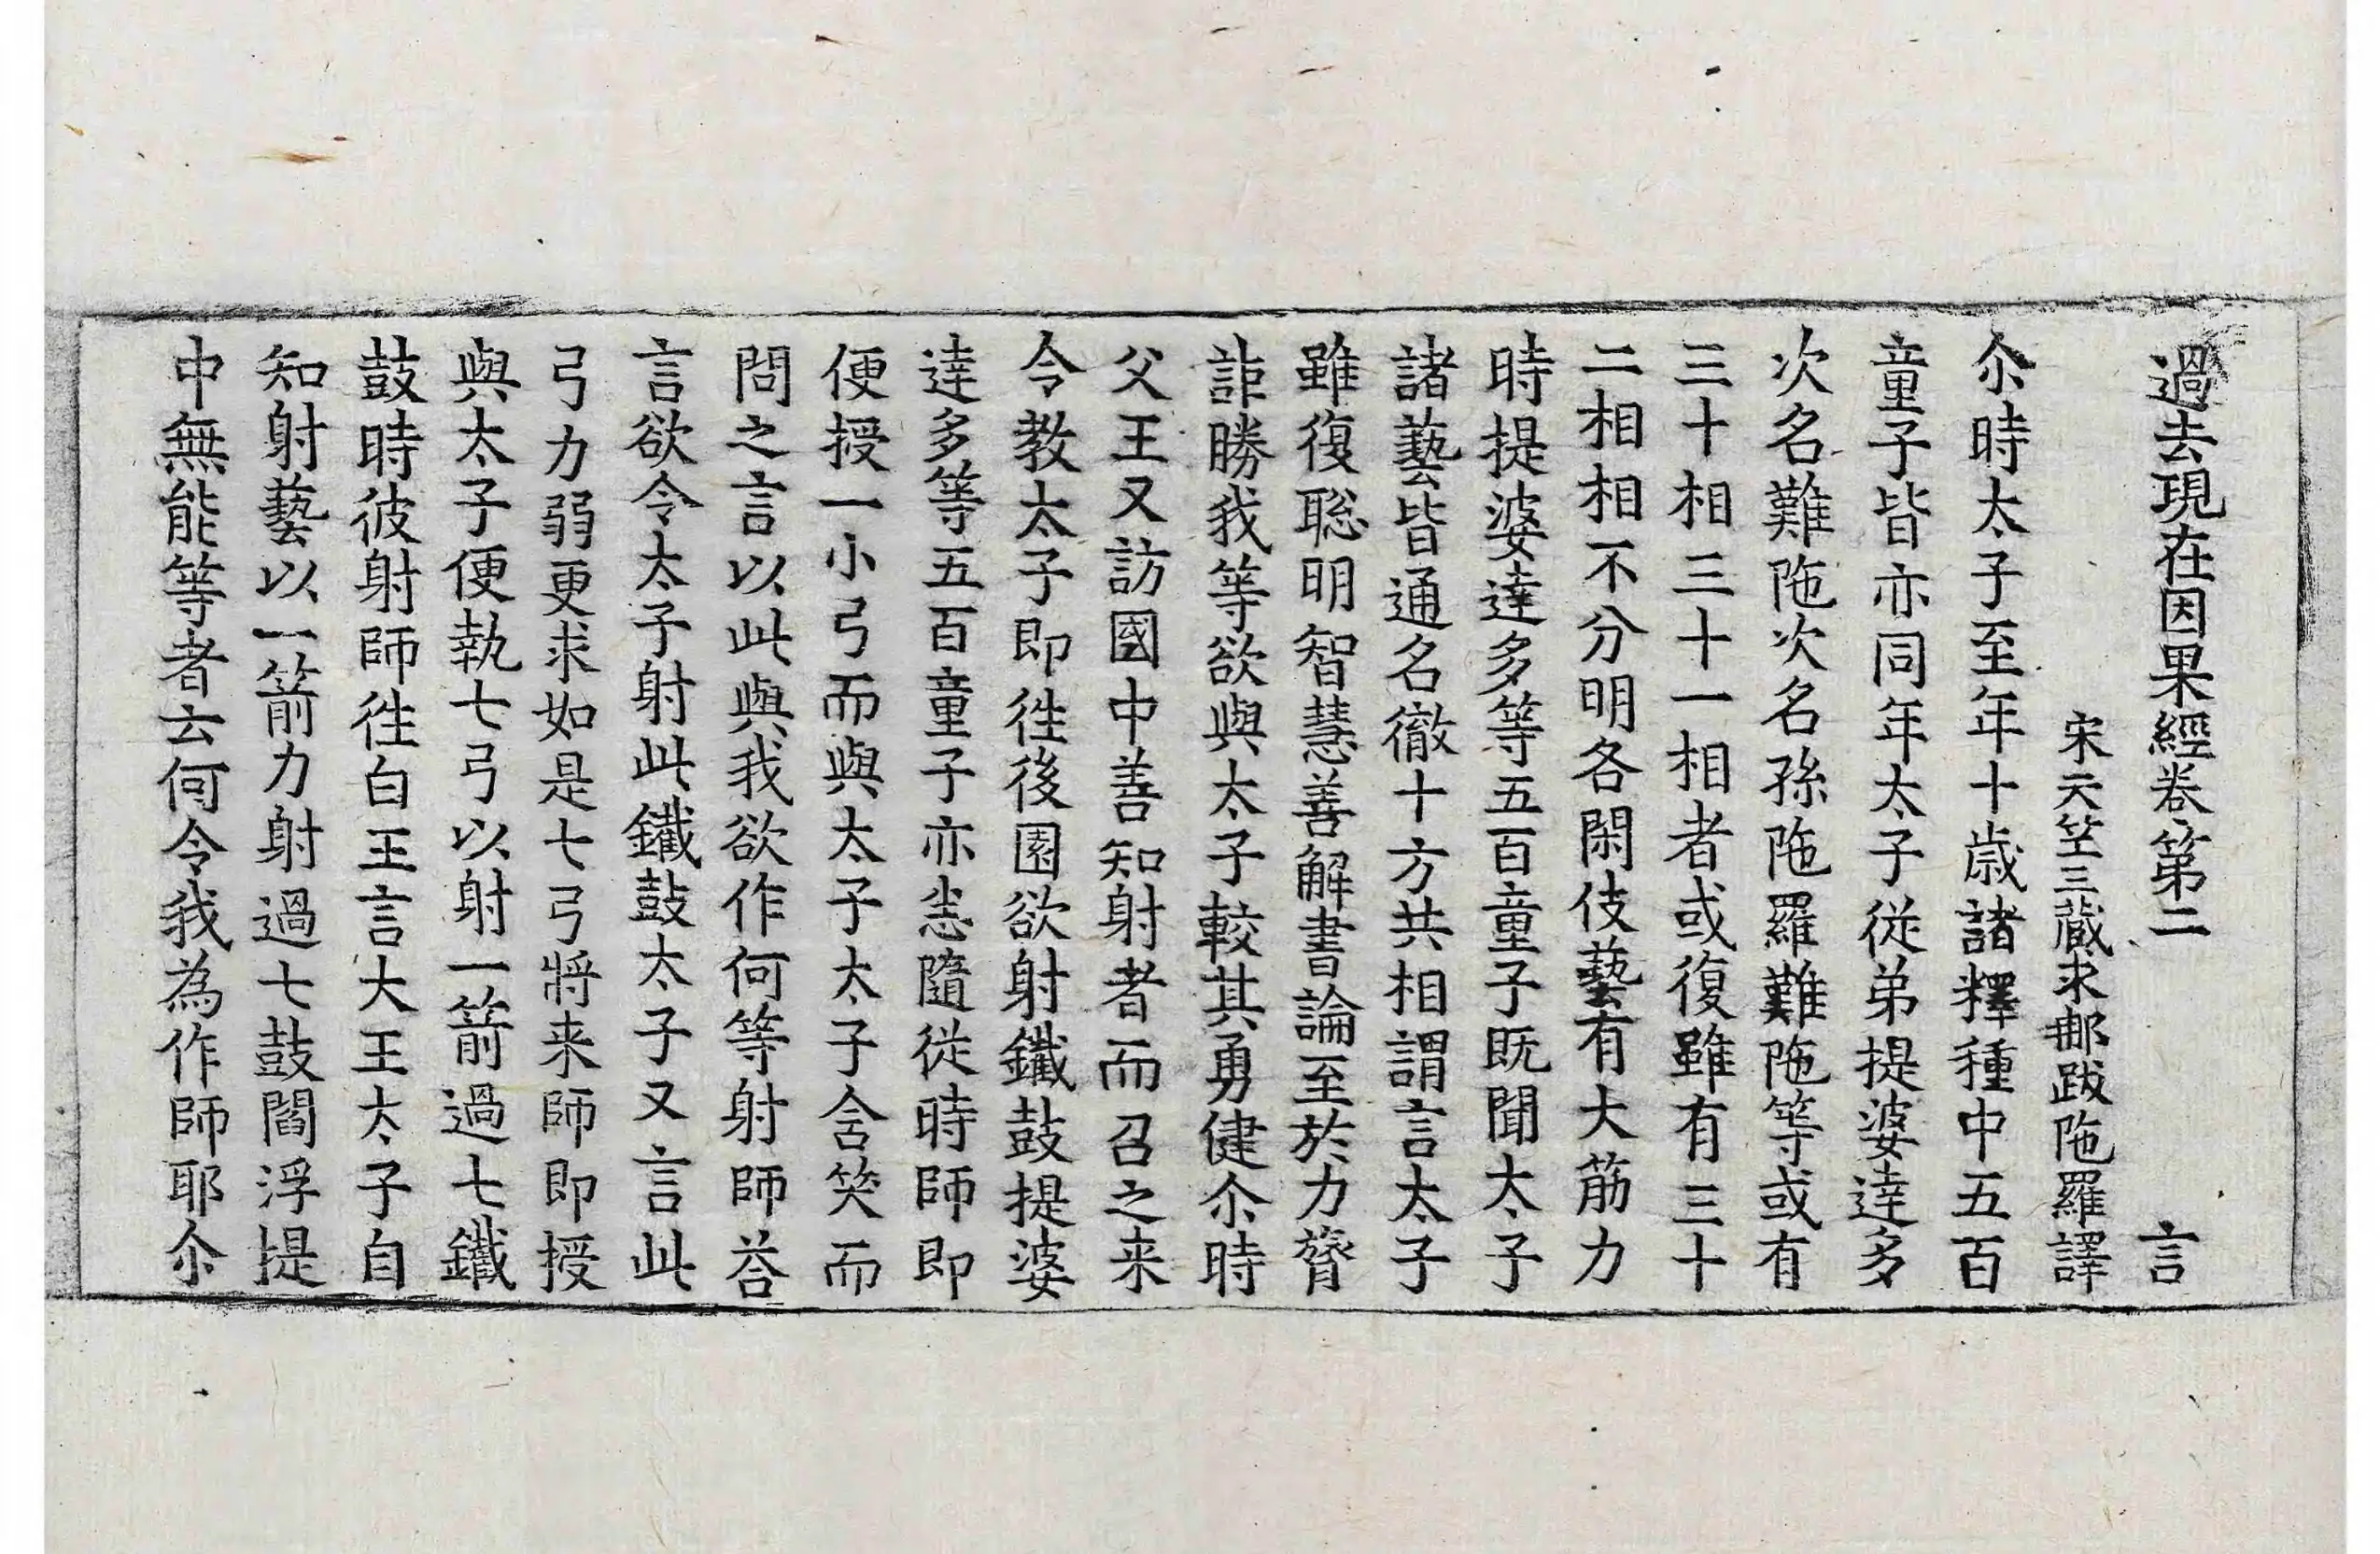 過去現在因果經卷第二 言
宋天竺三藏求那跋陁羅譯
尒時太子至年十歲諸釋種中五百
童子皆亦同年太子從弟提婆達多
次名難陁次名孫陁羅難陁等或有
三十相三十一相者或復雖有三十
二相相不分明各閑伎藝有大筋力
時提婆達多等五百童子旣聞太子
諸藝皆通名徹十方共相謂言太子
雖復聡明智慧善解書論至於力膂
詎勝我等欲與太子較其勇健尒時
父王又訪國中善知射者而召之来
令教太子即徃後園欲射鐵鼓提婆
達多等五百童子亦悉隨從時師即
便授一小弓而與太子太子含笑而
問之言以此與我欲作何等射師荅
言欲令太子射此鐵鼓太子又言此
弓力弱更求如是七弓將来師即授
與太子便執七弓以射一箭過七鐵
鼓時彼射師徃白王言大王太子自
知射藝以一箭力射過七鼓閻浮提
中無能等者云何令我為作師耶尒